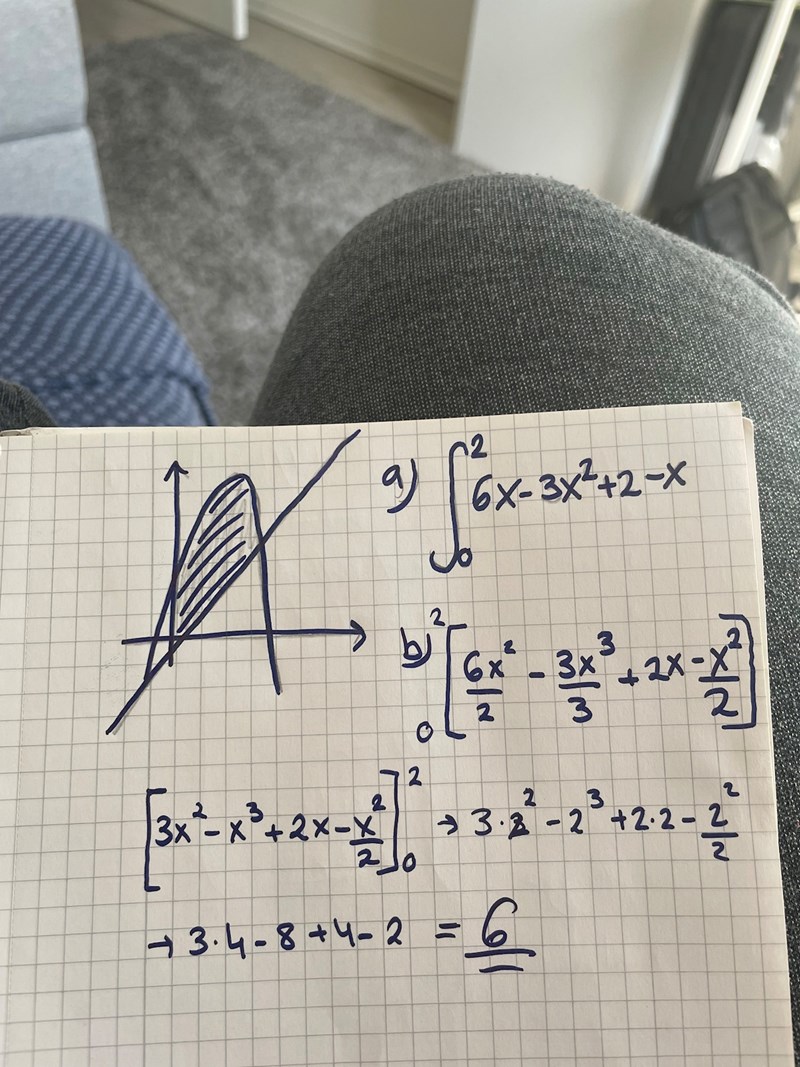 a) ∫₀² 6x-3x²+2-x
b) ₀²[6x²/2 - 3x³/3 + 2x - x²/2]
[3x²-x³+2x-x²/2]₀² → 3·2² - 2³ + 2·2 - 2²/2
→ 3·4-8+4-2 = 6